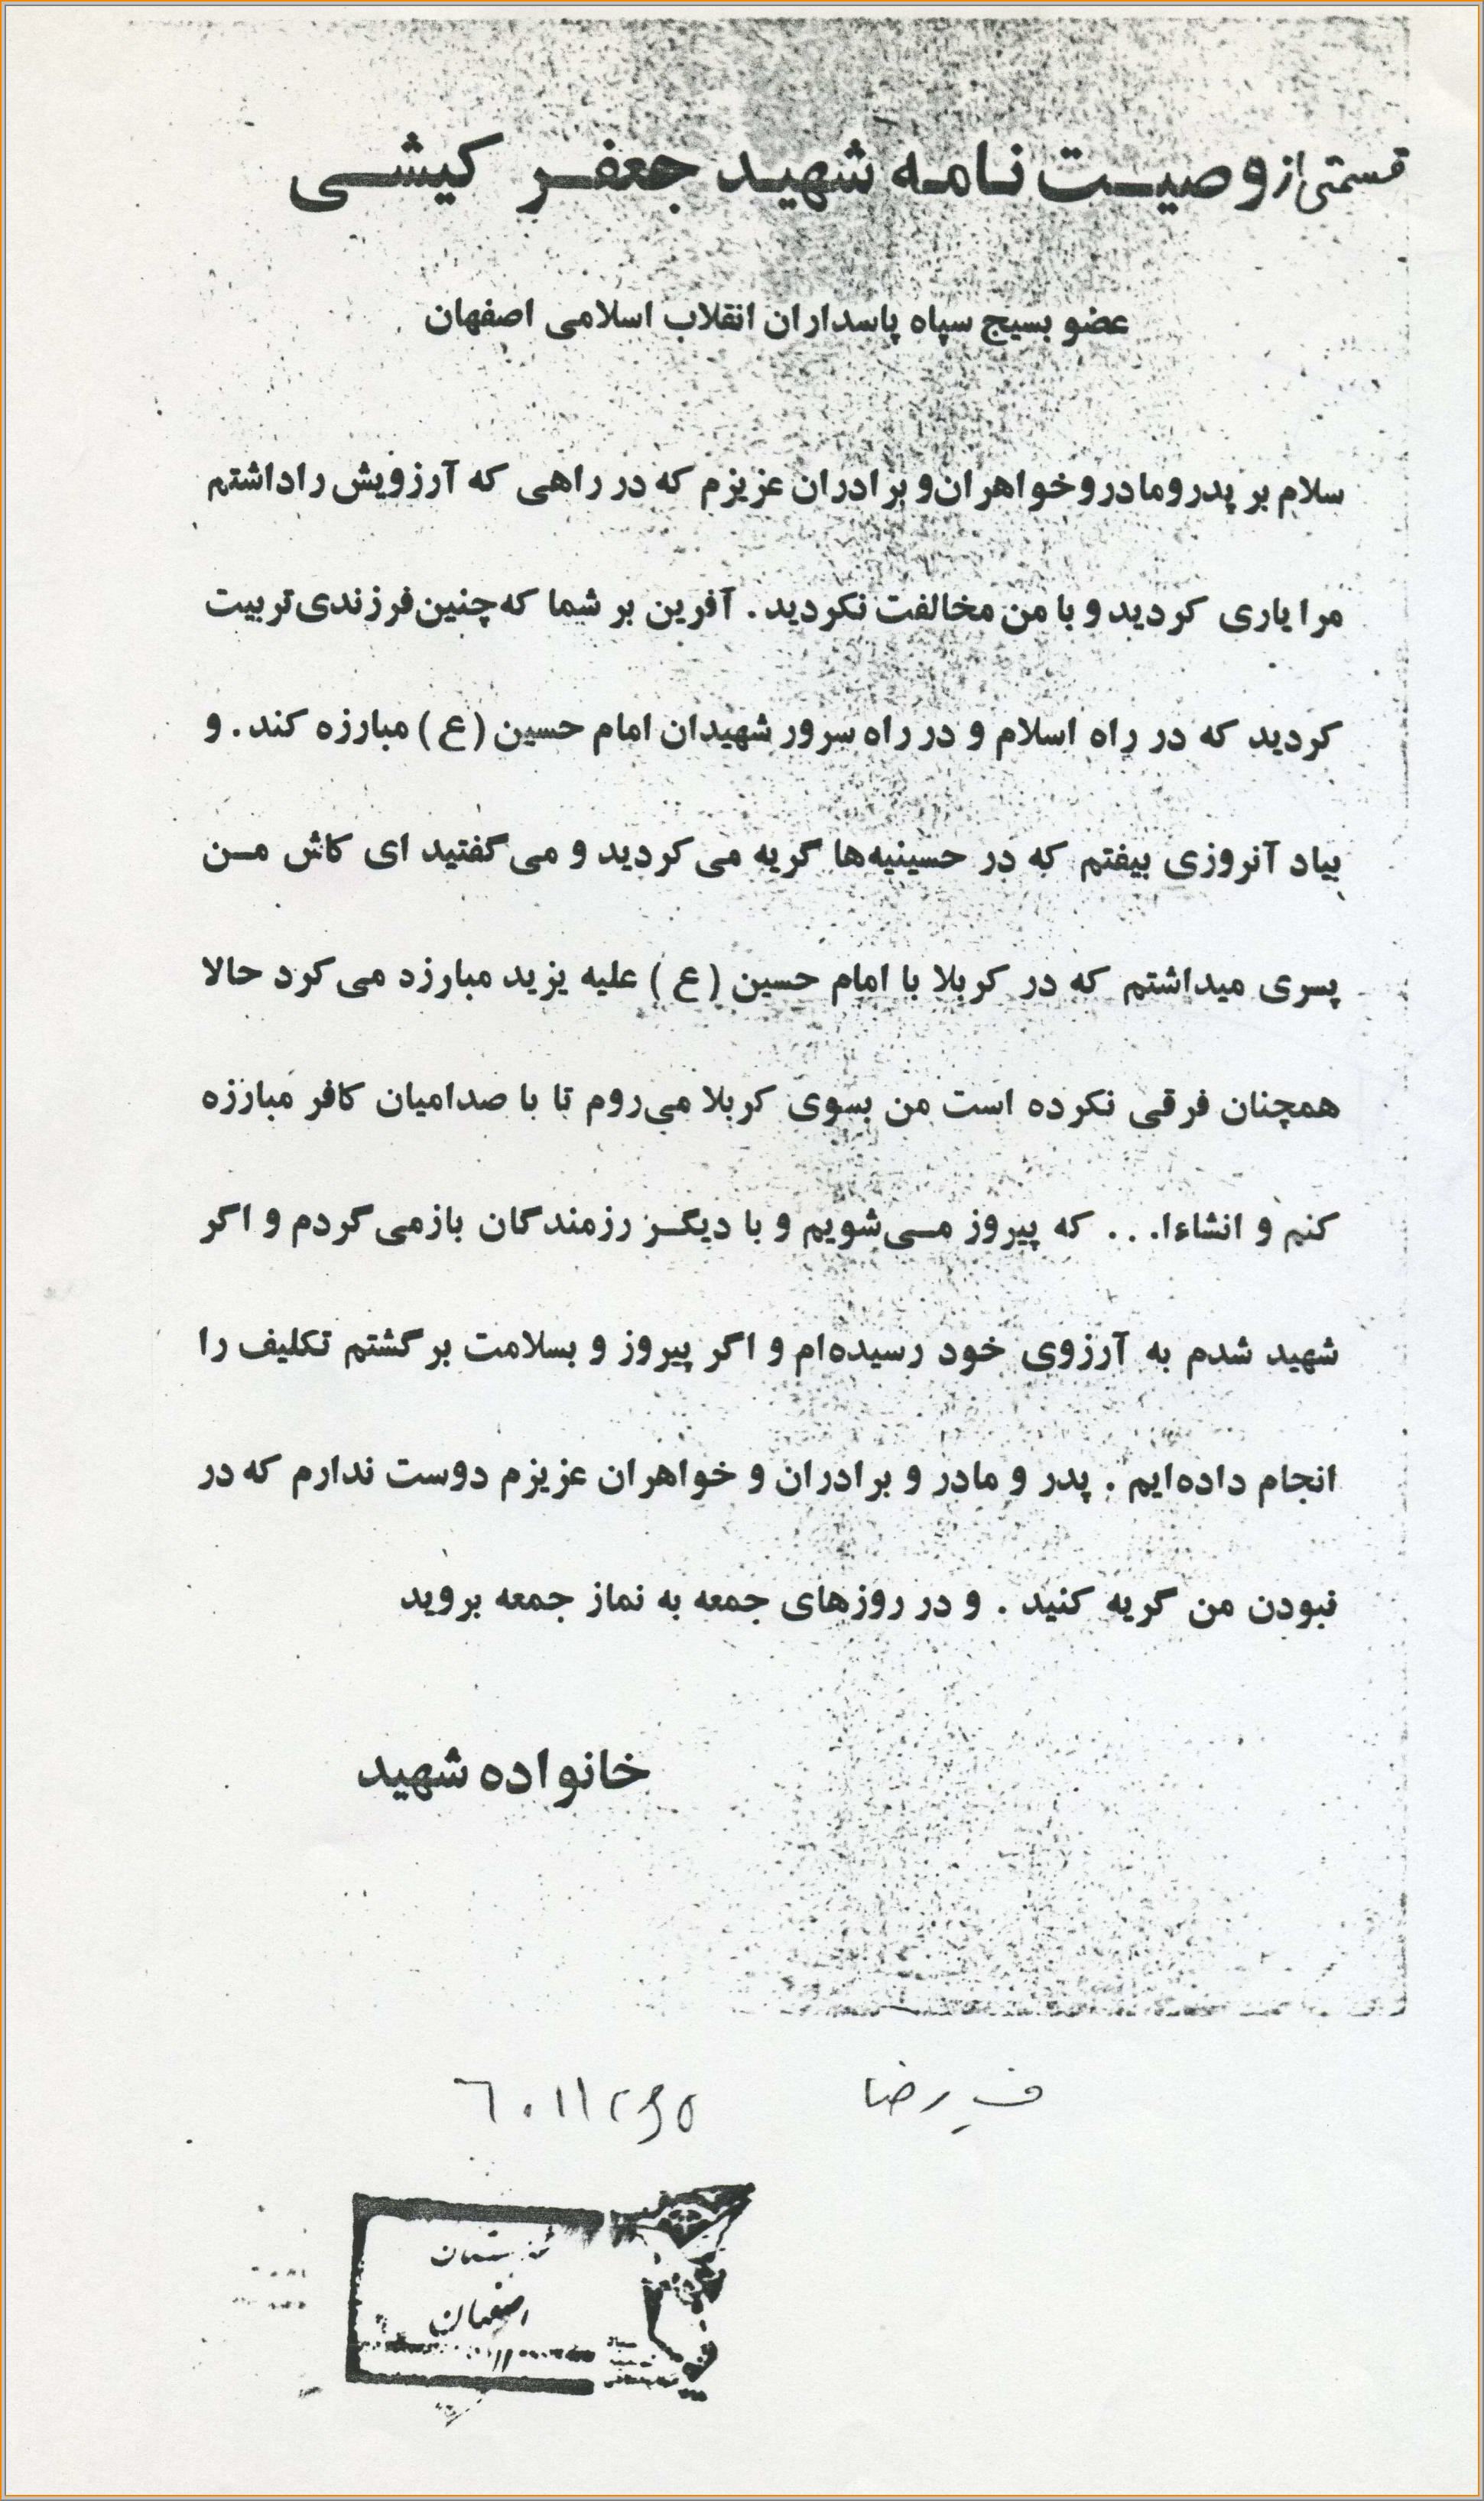 قسمتی از وصیت نامه شهید جعفر کیشی
عضو بسیج سپاه پاسداران انقلاب اسلامی اصفهان
سلام بر پدر و مادر و خواهران و برادران عزیزم که در راهی که آرزویش را داشتم
مرا یاری کردید و با من مخالفت نکردید . آفرین بر شما که چنین فرزندی تربیت
کردید که در راه اسلام و در راه سرور شهیدان امام حسین (ع) مبارزه کند . و
بیاد آنروزی بیفتم که در حسینیه‌ها گریه می‌کردید و می‌گفتید ای کاش من
پسری میداشتم که در کربلا با امام حسین (ع) علیه یزید مبارزد می‌کرد حالا
همچنان فرقی نکرده است من بسوی کربلا می‌روم تا با صدامیان کافر مبارزه
کنم و انشاءا. . . که پیروز می‌شویم و با دیگر رزمندگان بازمی‌گردم و اگر
شهید شدم به آرزوی خود رسیده‌ام و اگر پیروز و بسلامت برگشتم تکلیف را
انجام داده‌ایم . پدر و مادر و برادران و خواهران عزیزم دوست ندارم که در
نبودن من گریه کنید . و در روزهای جمعه به نماز جمعه بروید
خانواده شهید
رضا
اصفهان